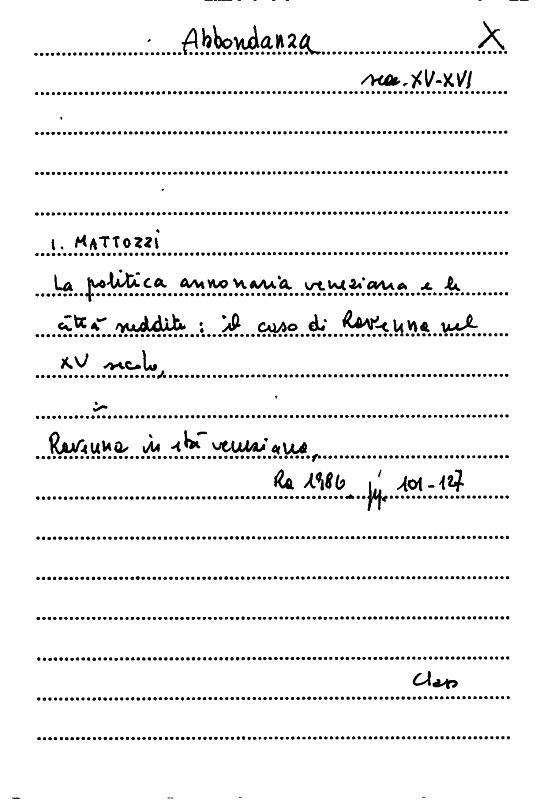 Abbondanza X
sec. XV-XVI
I. MATTOZZI
La politica annonaria veneziana e le
città suddite: il caso di Ravenna nel
XV secolo,
in
Ravenna in età veneziana,
Ra 1986 pp. 101-127